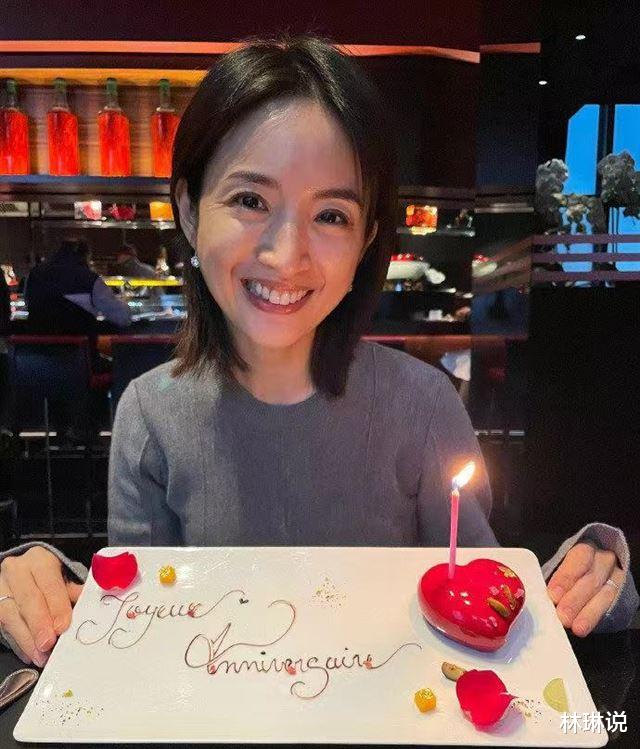 Joyeux
Anniversaire
林琳说